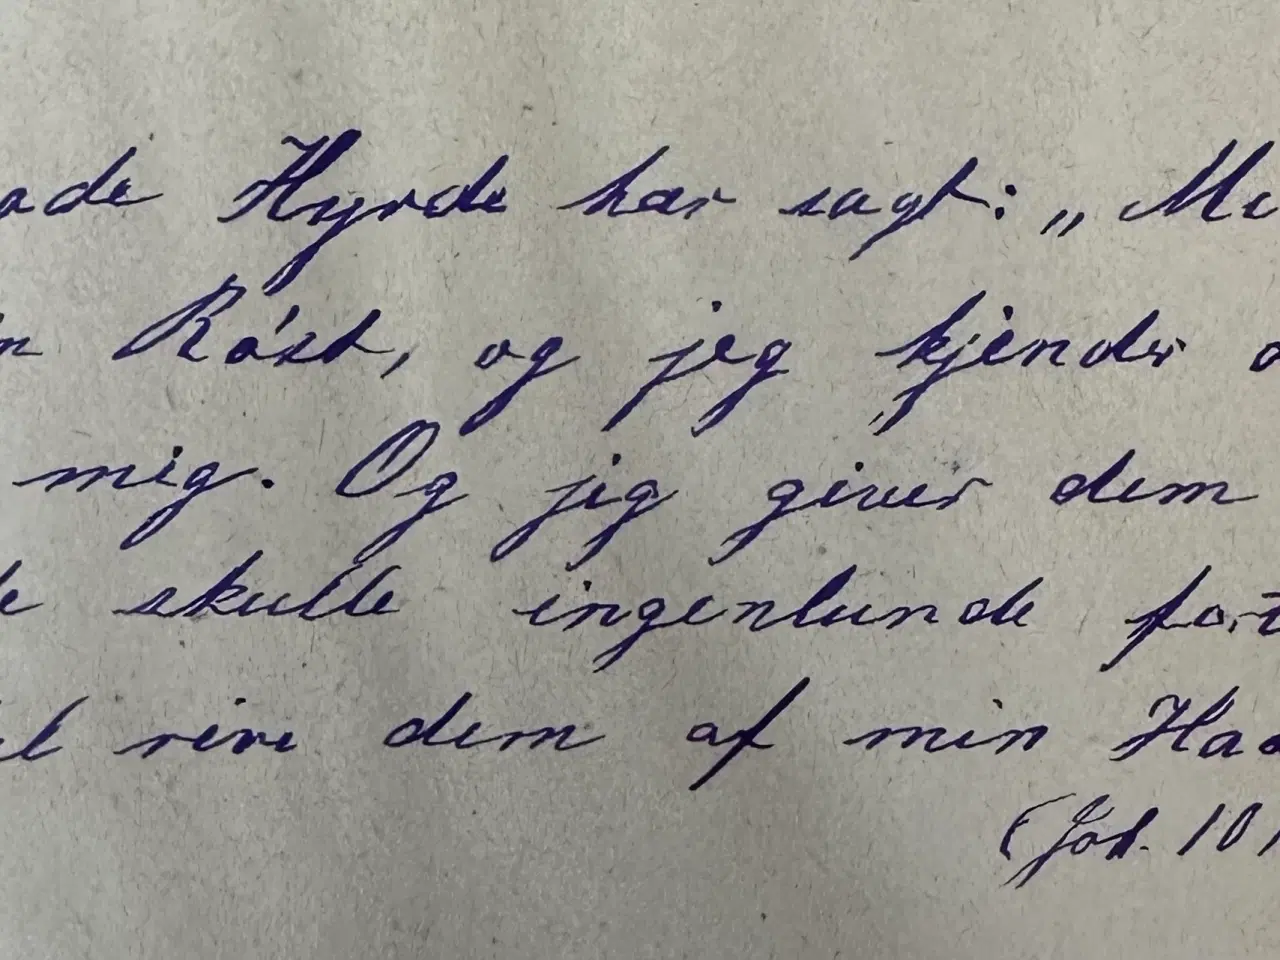 ode Hyrde har sagt: „Mi
n Róst, og jeg kjender
mig. Og jeg giver dem
skulle ingenlunde fort
rive dem af min Haa
(Joh. 10,